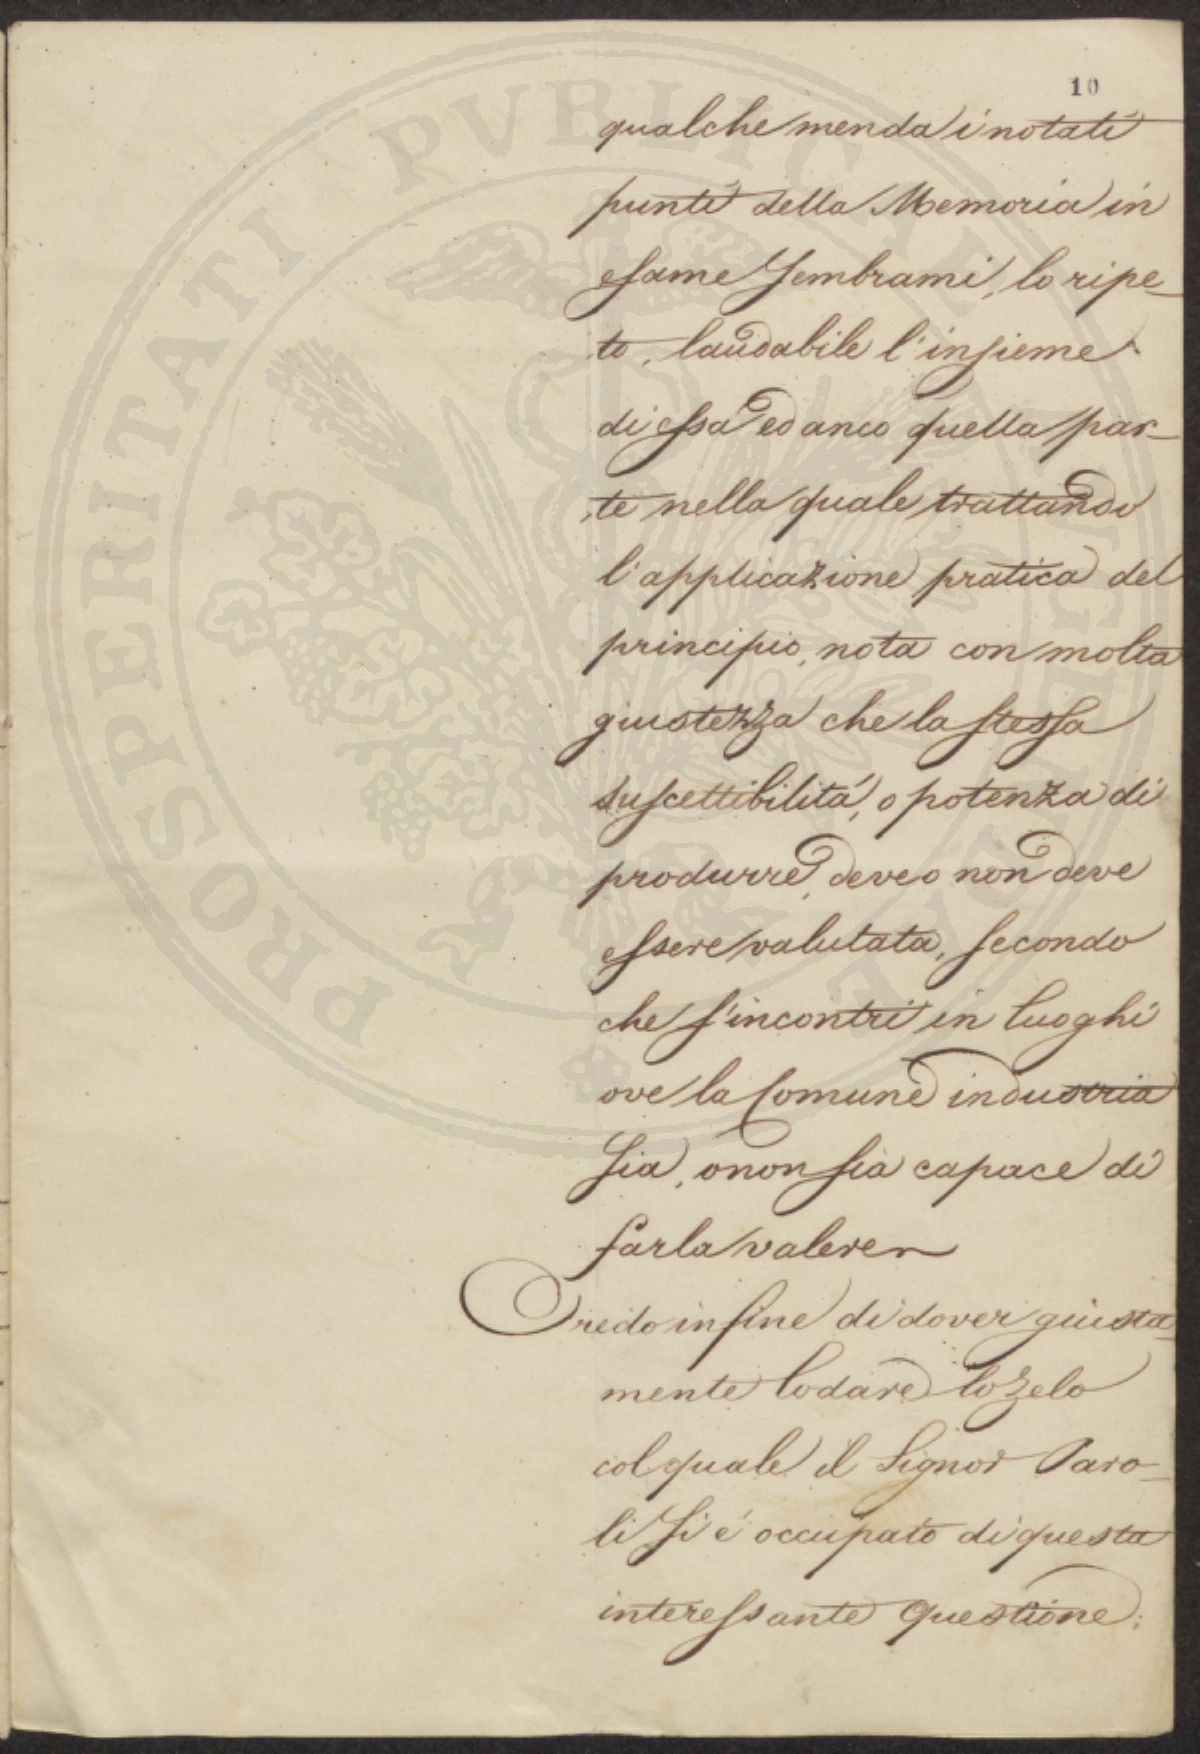 10
qualche menda i notati
punti della Memoria in
esame sembrami, lo ripe-
to, laudabile l'insieme
di essa ed anco quella par-
te nella quale trattando
l'applicazione pratica del
principio, nota con molta
giustezza che la stessa
suscettibilità, o potenza di
produrre, deve o non deve
essere valutata, secondo
che s'incontri in luoghi
ove la Comune industria
sia, o non sia capace di
farla valere
Credo infine di dover giusta-
mente lodare lo zelo
col quale il Signor Paro-
li si è occupato di questa
interessante questione;
PROSPERITATI PVBLICAE AVGENDAE